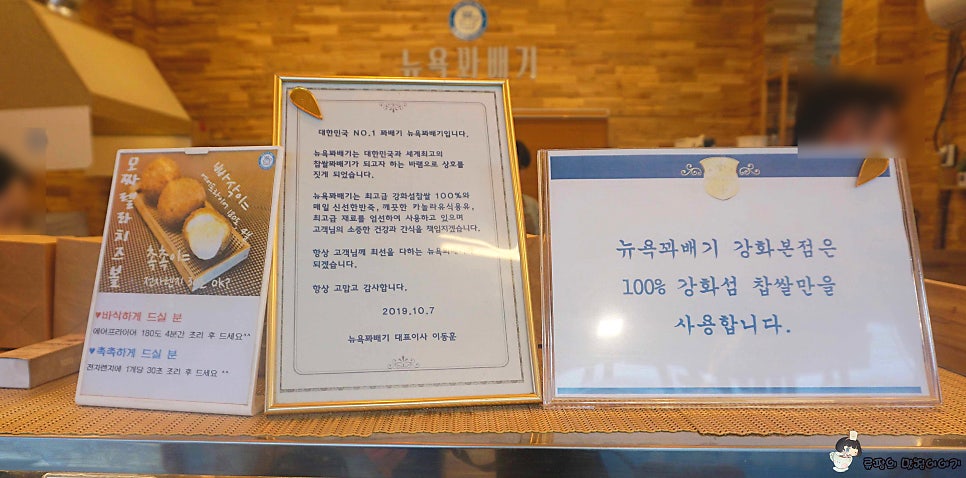 뉴욕꽈배기
모짜렐라치즈볼
바삭이는
에어프라이어 180도 4분
촉촉이는
전자렌지 30초 OK?
♥바삭하게 드실 분
에어프라이어 180도 4분간 조리 후 드세요^^
♥촉촉하게 드실 분
전자렌지에 1개당 30초 조리 후 드세요 ^^
대한민국 NO.1 꽈배기 뉴욕꽈배기입니다.
뉴욕꽈배기는 대한민국과 세계최고의
찹쌀꽈배기가 되고자 하는 바램으로 상호를
짓게 되었습니다.
뉴욕꽈배기는 최고급 강화섬찹쌀 100%와
매일 신선한반죽, 깨끗한 카놀라유식용유,
최고급 재료를 엄선하여 사용하고 있으며
고객님의 소중한 건강과 간식을 책임지겠습니다.
항상 고객님께 최선을 다하는 뉴욕꽈배기가
되겠습니다.
항상 고맙고 감사합니다.
2019.10.7
뉴욕꽈배기 대표이사 이동훈
뉴욕꽈배기 강화본점은
100% 강화섬 찹쌀만을
사용합니다.
맛집이야기